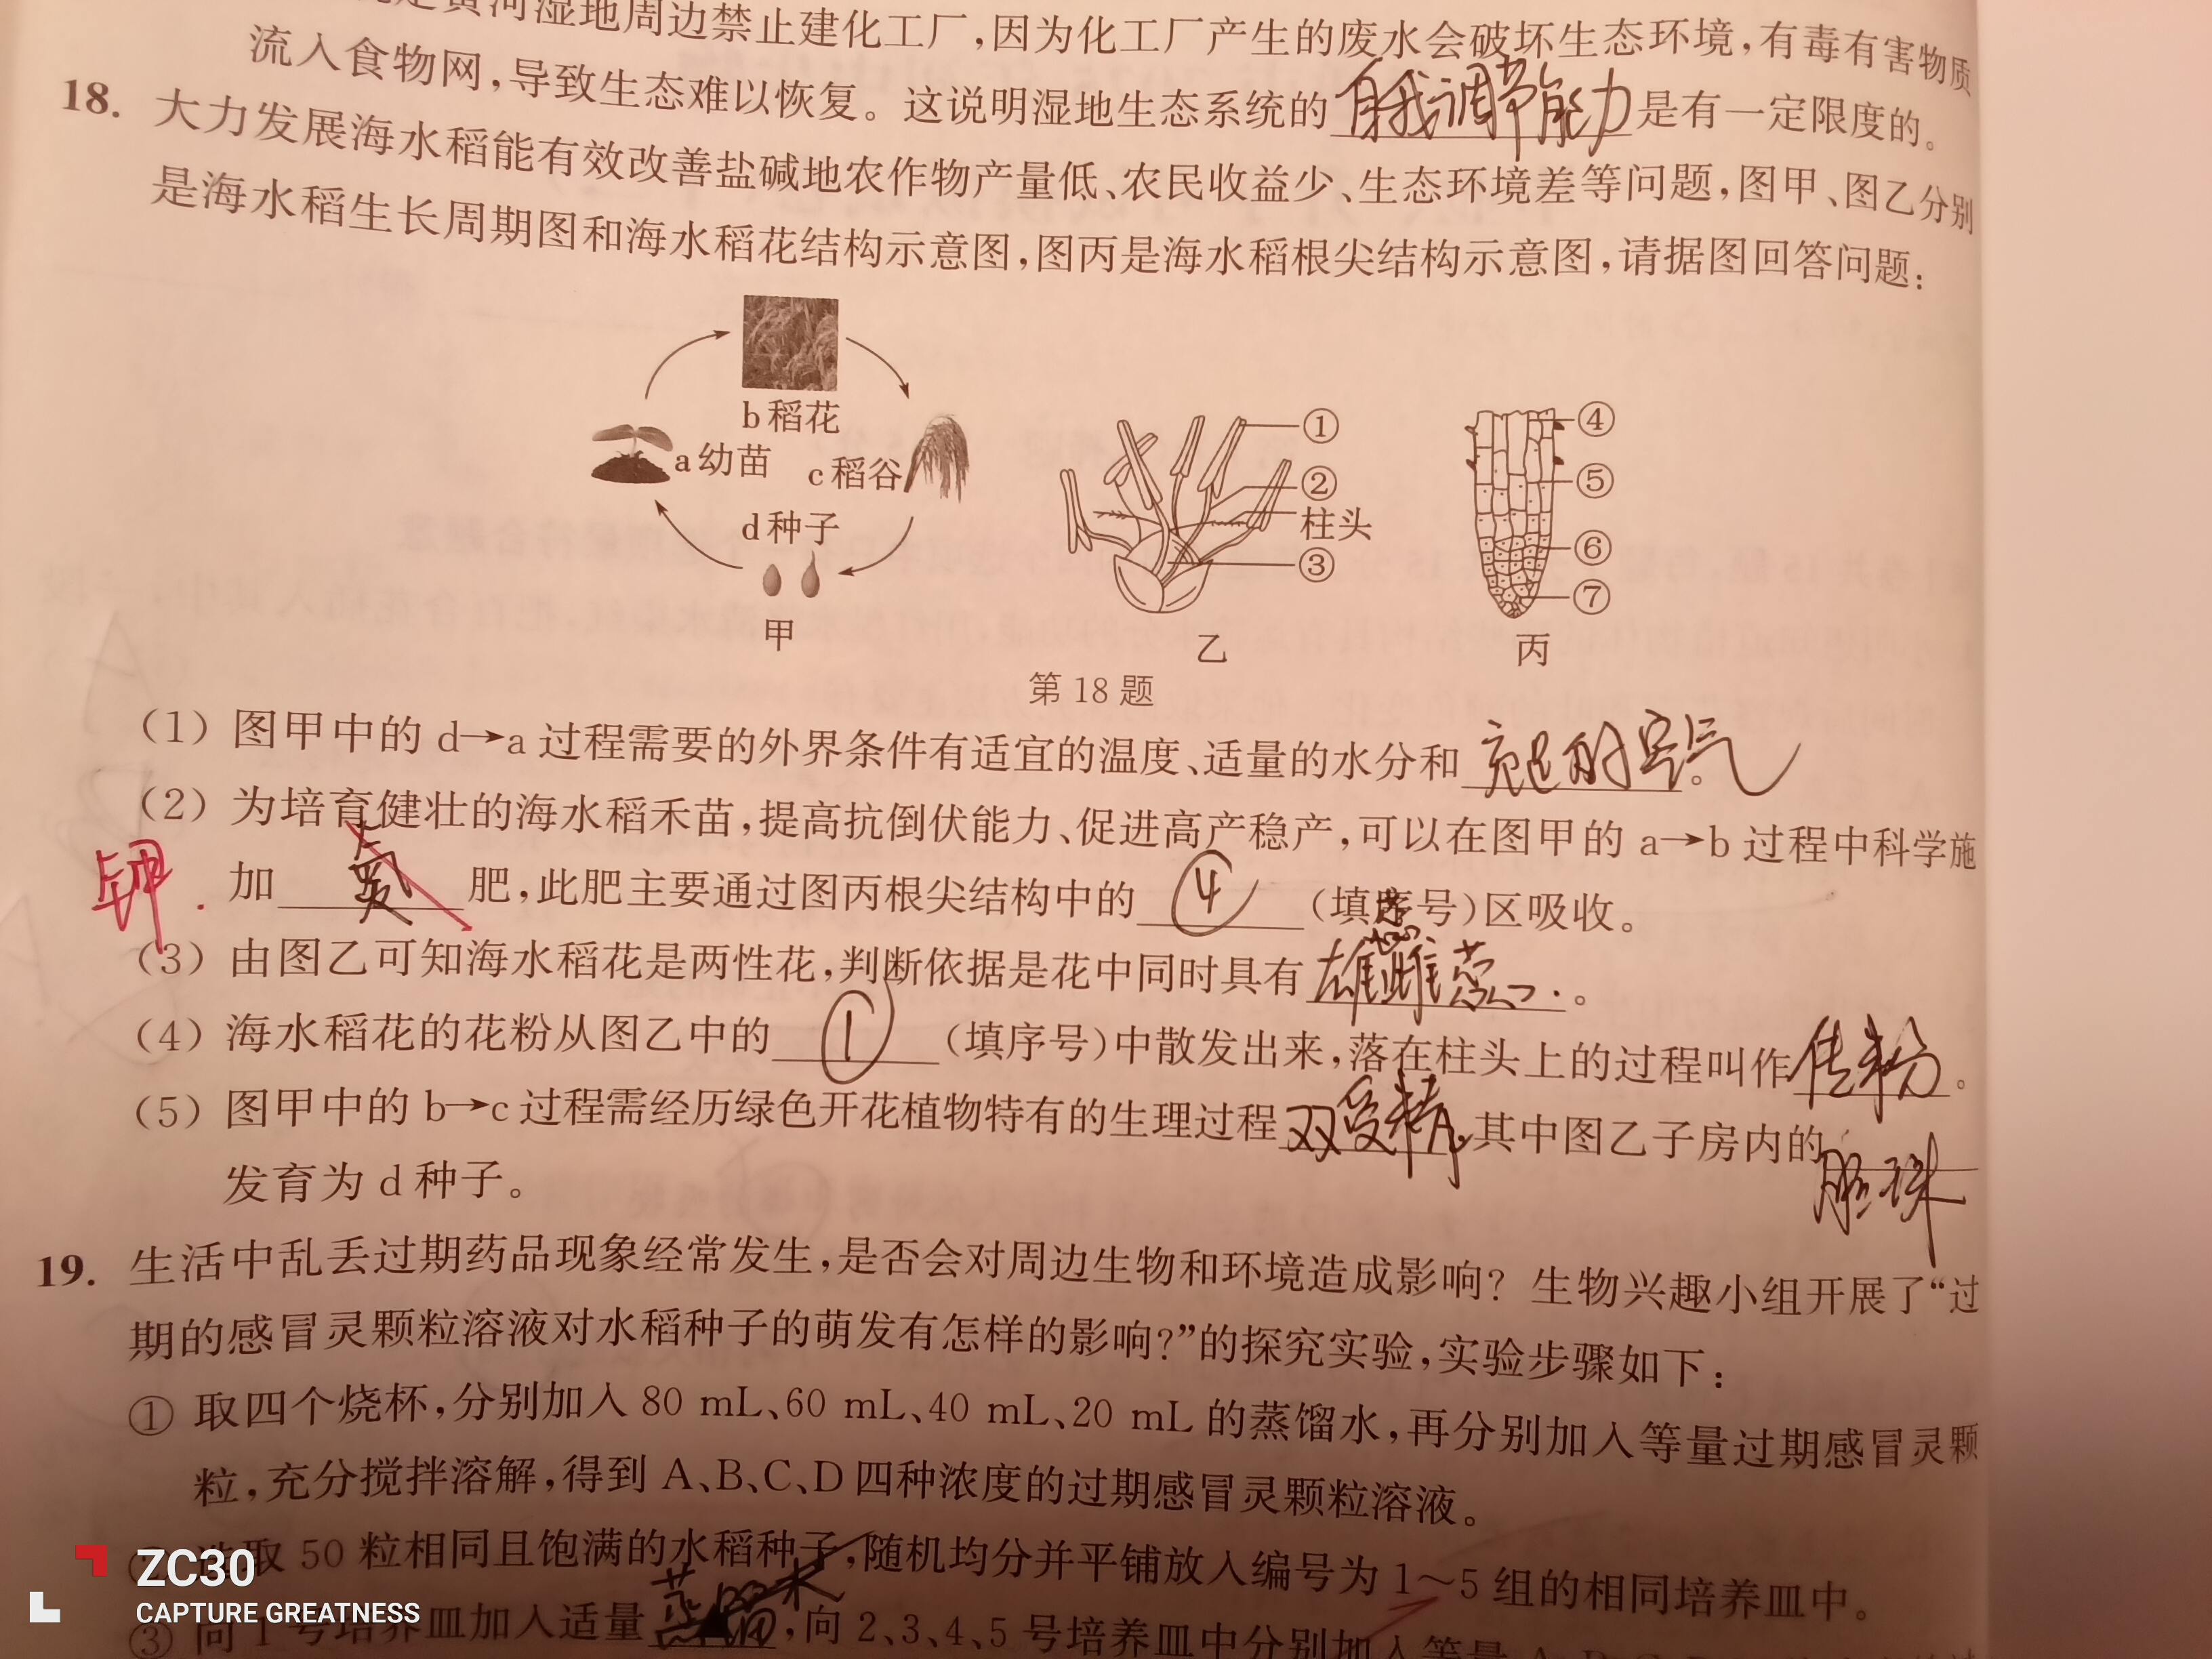 黄河湿地周边禁止建化工厂,因为化工厂产生的废水会破坏生态环境,有毒有害物质
流入食物网,导致生态难以恢复。这说明湿地生态系统的自我调节能力是有一定限度的。
18. 大力发展海水稻能有效改善盐碱地农作物产量低、农民收益少、生态环境差等问题,图甲、图乙分别
是海水稻生长周期图和海水稻花结构示意图,图丙是海水稻根尖结构示意图,请据图回答问题:
b稻花
a幼苗
c稻谷
d种子
甲
①
②
柱头
③
乙
④
⑤
⑥
⑦
丙
第18题
(1) 图甲中的d→a过程需要的外界条件有适宜的温度、适量的水分和充足的空气。
(2) 为培育健壮的海水稻禾苗,提高抗倒伏能力、促进高产稳产,可以在图甲的a→b过程中科学施
钾. 加 氮 肥,此肥主要通过图丙根尖结构中的 ④ (填序号)区吸收。
(3) 由图乙可知海水稻花是两性花,判断依据是花中同时具有雄蕊雌蕊。
(4) 海水稻花的花粉从图乙中的 ① (填序号)中散发出来,落在柱头上的过程叫作传粉。
(5) 图甲中的b→c过程需经历绿色开花植物特有的生理过程双受精,其中图乙子房内的胚珠
发育为d种子。
19. 生活中乱丢过期药品现象经常发生,是否会对周边生物和环境造成影响?生物兴趣小组开展了“过
期的感冒灵颗粒溶液对水稻种子的萌发有怎样的影响?”的探究实验,实验步骤如下:
① 取四个烧杯,分别加入80 mL、60 mL、40 mL、20 mL的蒸馏水,再分别加入等量过期感冒灵颗
粒,充分搅拌溶解,得到A、B、C、D四种浓度的过期感冒灵颗粒溶液。
取50粒相同且饱满的水稻种子,随机均分并平铺放入编号为1~5组的相同培养皿中。
③ 向1号培养皿加入适量蒸馏水,向2、3、4、5号培养皿中分别加入等量
ZC30
CAPTURE GREATNESS